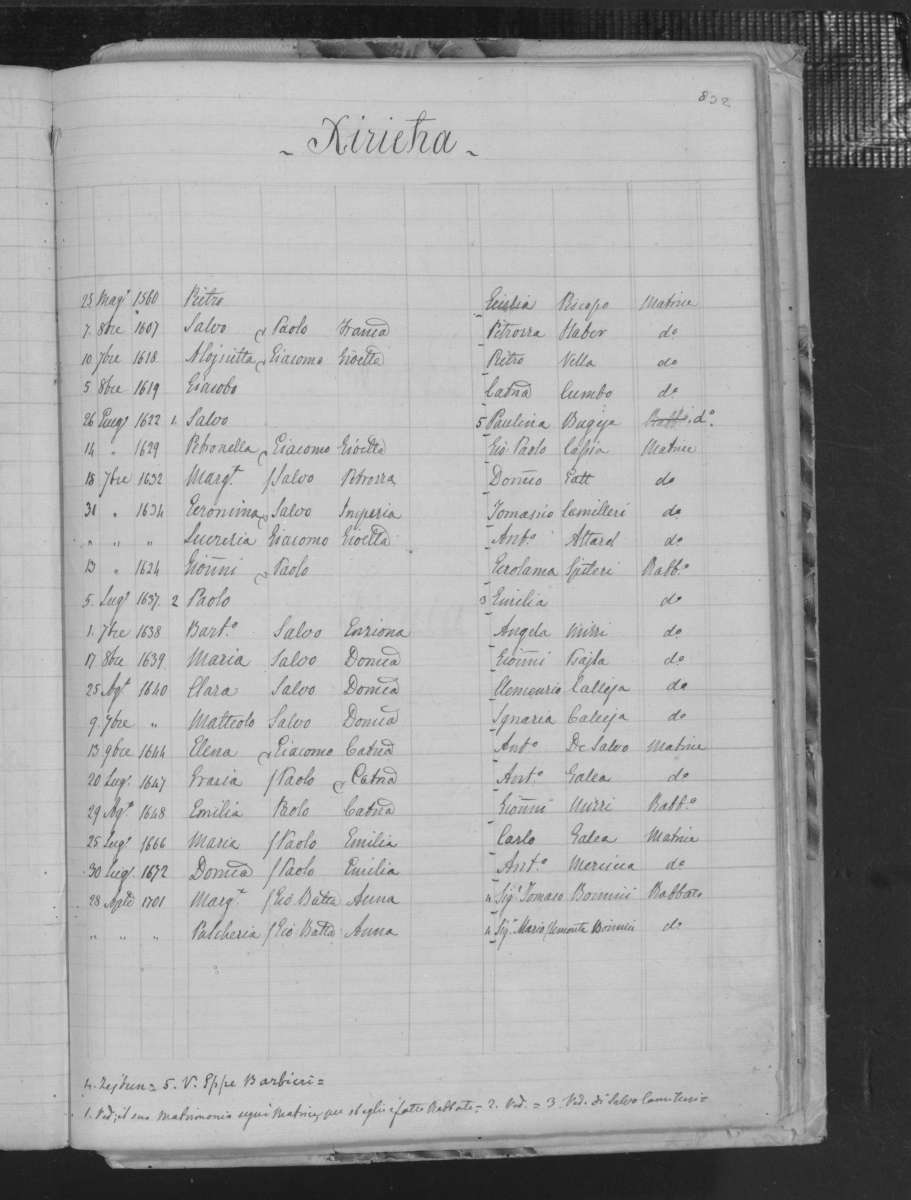 832
- Xiricha -
25 Magº 1560 Pietro Emilia Biscopo Matrice
7. 8bre 1607 Salvo Paolo Francā Petrorra Haber dº
10 7bre 1618. Alojsitta Giacomo Gioetta Pietro Vella do
5 8bre 1619 Giacobo Catnā Cumbo dº
26 Giugº 1622 1. Salvo 5 Paulina Bugeja Rabbº. dº
14 " 1629 Petronella Giacomo Gioetta Gio Paolo Cassia Matrice
18 7bre 1632 Margt. Salvo Petrorra Domco Gatt do
31 " 1634 Geronima Salvo Imperia Tomasio Camilleri do
" " " Lucrezia Giacomo Gioetta Antº Attard do
13 " 1624 Gioñni Paolo Gerolama Spiteri Rabbº
5. Lugº 1637. 2 Paolo 3 Emilia do
1. 7bre 1638 Bartº Salvo Enriona Angela Mirri do
17 8bre 1639 Maria Salvo Domcā Gioñni Bajla do
25 Agt. 1640 Clara Salvo Domcā Clemenzio Calleja do
9. 7bre " Matteolo Salvo Domcā Ignazia Calleja dº
13 9bre 1644 Elena Giacomo Catnā Antº De Salvo Matrice
20 Lugº 1647 Grazia Paolo Catnā Antº Galea do
29 Agt. 1648 Emilia Paolo Catnā Gioñni Mirri Rabbº
25 Lugº 1666 Maria Paolo Emilia Carlo Galea Matrice
30 Lugº 1672 Domcā Paolo Emilia Antº Mercieca do
28 Aple 1701 Margt. Gio Batta Anna 4 Sigr. Tomaso Bonnici Rabbato
" " " Pulcheria Gio Batta Anna 4 Sigr. Mario Bonnici do
4. Zejtun = 5. V. Gppe Barbieri =
1. Ved; il suo matrimonio seguì Matrice, = 2. Ved. = 3 Ved. di Salvo Camilleri =